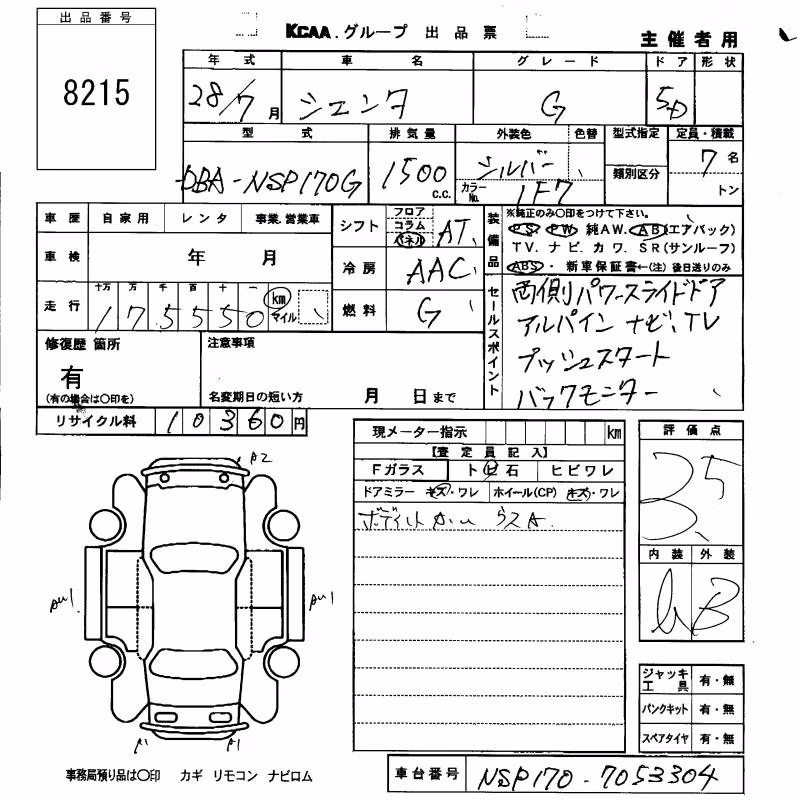 出品番号
8215
KCAA.グループ 出品票
主催者用
年式 車名 グレード ドア 形状
28/7月 シエンタ G 5D
型式 排気量 外装色 色替 型式指定 定員・積載
DBA-NSP170G 1500 c.c. シルバー カラーNo. 1F7 類別区分 7名 トン
車歴 自家用 レンタ 事業.営業車
車検 年 月
走行 十万 万 千 百 十 一
175550 km マイル
シフト フロア コラム パネル AT
冷房 AAC
燃料 G
装備品 ※純正のみ○印をつけて下さい。
PS. PW. 純AW. AB(エアバック)
TV. ナビ. カワ. SR(サンルーフ)
ABS・ 新車保証書←(注) 後日送りのみ
セールスポイント
両側パワースライドドア
アルパイン ナビ、TV
プッシュスタート
バックモニター
修復歴 箇所
有
(有の場合は○印を)
注意事項
名変期日の短い方 月 日まで
リサイクル料 10360円
現メーター指示 km
【査定員記入】
Fガラス トビ石 ヒビワレ
ドアミラー キズ・ワレ ホイール(CP) キズ・ワレ
評価点
3.5
内装 外装
B
A2
AU1
AU1
A1
A1
ジャッキ工具 有・無
パンクキット 有・無
スペアタイヤ 有・無
事務局預り品は○印 カギ リモコン ナビロム
車台番号 NSP170-7053304